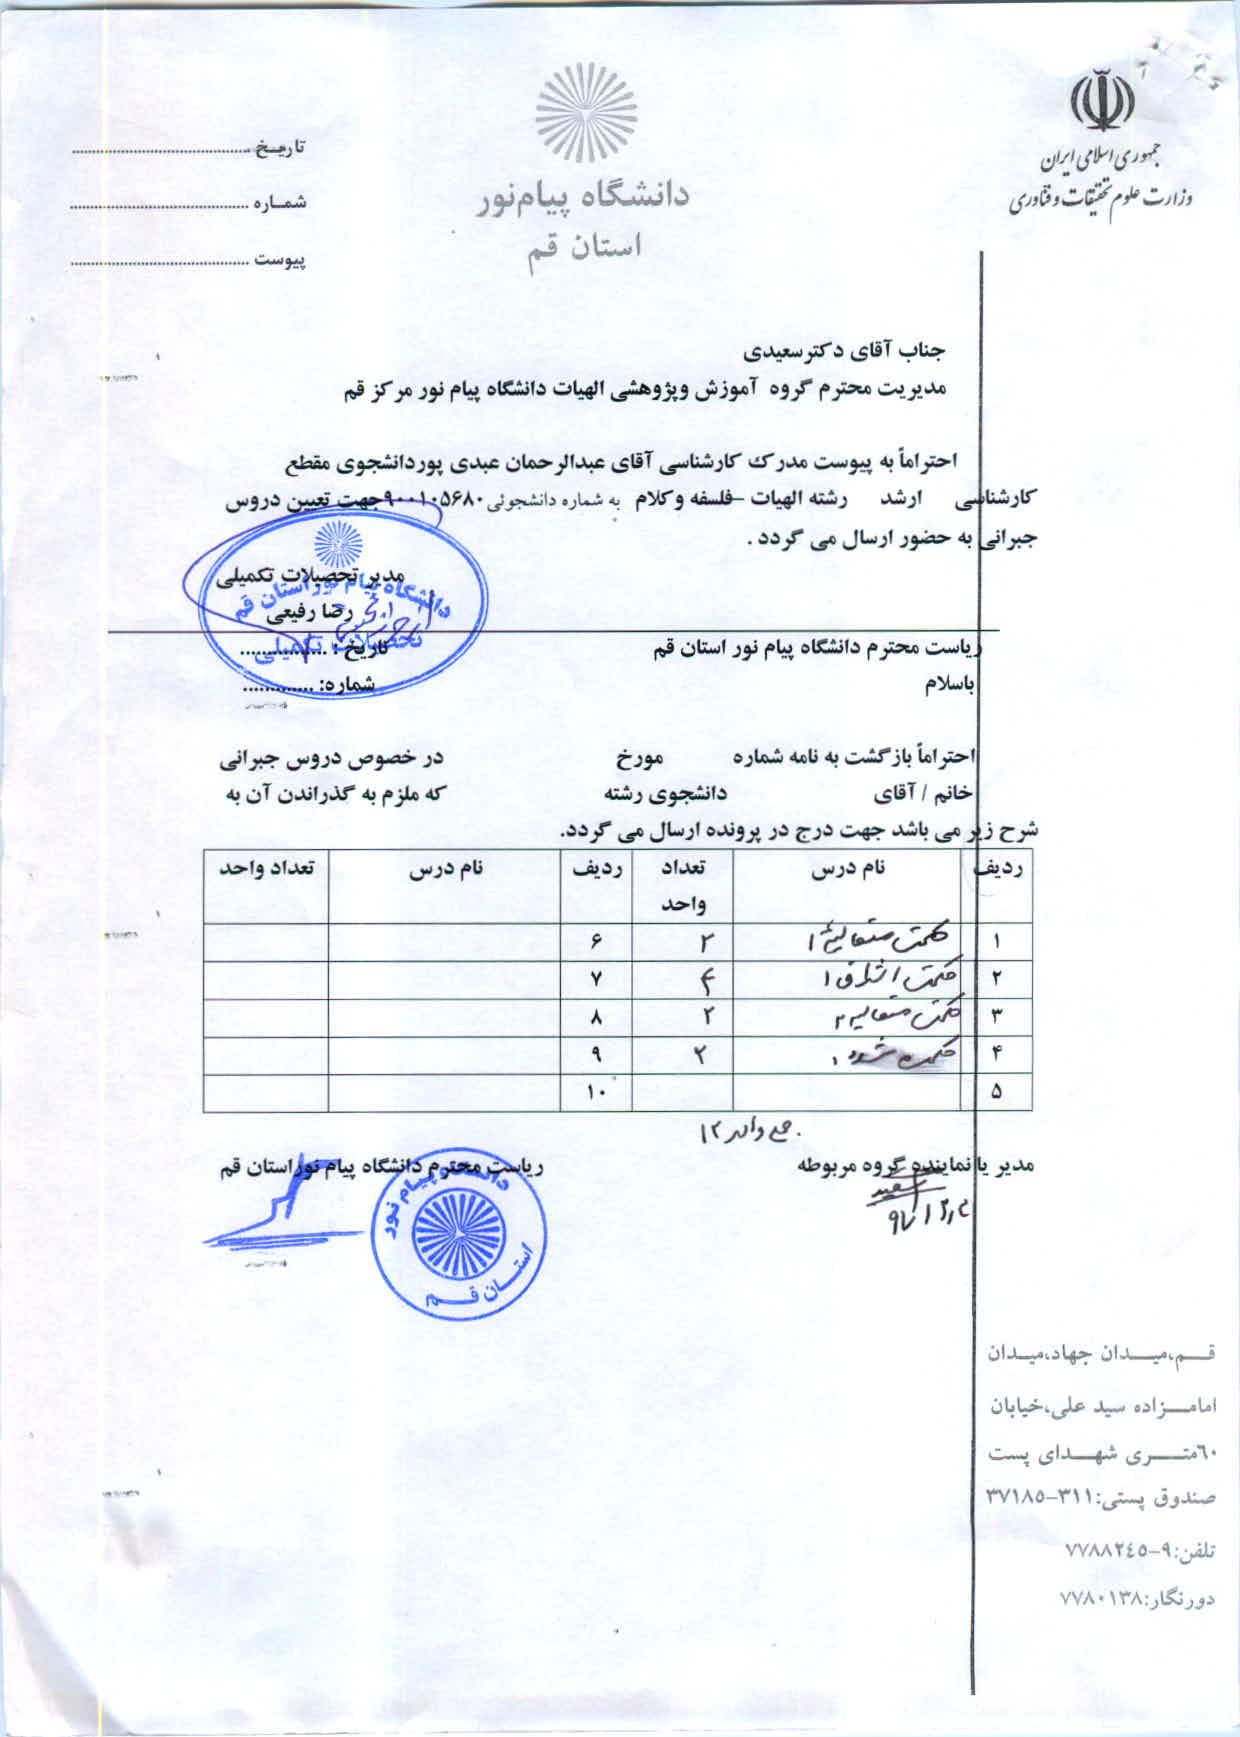 جمهوری اسلامی ایران
وزارت علوم تحقیقات و فناوری
دانشگاه پیام‌نور
استان قم
تاریـخ ........................................
شمـاره ........................................
پیوست ........................................
جناب آقای دکترسعیدی
مدیریت محترم گروه آموزش وپژوهشی الهیات دانشگاه پیام نور مرکز قم
احتراماً به پیوست مدرک کارشناسی آقای عبدالرحمان عبدی پوردانشجوی مقطع
کارشناسی ارشد رشته الهیات –فلسفه وکلام به شماره دانشجوئی۹۰۰۱۰۵۶۸۰جهت تعیین دروس
جبرانی به حضور ارسال می گردد .
مدیر تحصیلات تکمیلی
رضا رفیعی
دانشگاه پیام نور استان قم
تحصیلات تکمیلی
ریاست محترم دانشگاه پیام نور استان قم
تاریخ : ...............
باسلام
شماره: .............
احتراماً بازگشت به نامه شماره مورخ در خصوص دروس جبرانی
خانم / آقای دانشجوی رشته که ملزم به گذراندن آن به
شرح زیر می باشد جهت درج در پرونده ارسال می گردد.
ردیف نام درس تعداد واحد ردیف نام درس تعداد واحد
۱ حکمت متعالیه ۱ ۲ ۶
۲ حکمت اشراق ۱ ۴ ۷
۳ حکمت متعالیه ۲ ۲ ۸
۴ حکمت ۱ ۲ ۹
۵ ۱۰
جمع واحد ۱۲
مدیر یا نماینده گروه مربوطه ریاست محترم دانشگاه پیام نوراستان قم
دانشگاه پیام نور
استـان قـم
قــم،میــدان جهاد،میـدان
امامــزاده سید علی،خیابان
٦٠متــری شهــدای پست
صندوق پستی:۳۱۱–۳۷۱۸۵
تلفن:۹–۷۷۸۸۲٤۵
دورنگار:۷۷۸۰۱۳۸